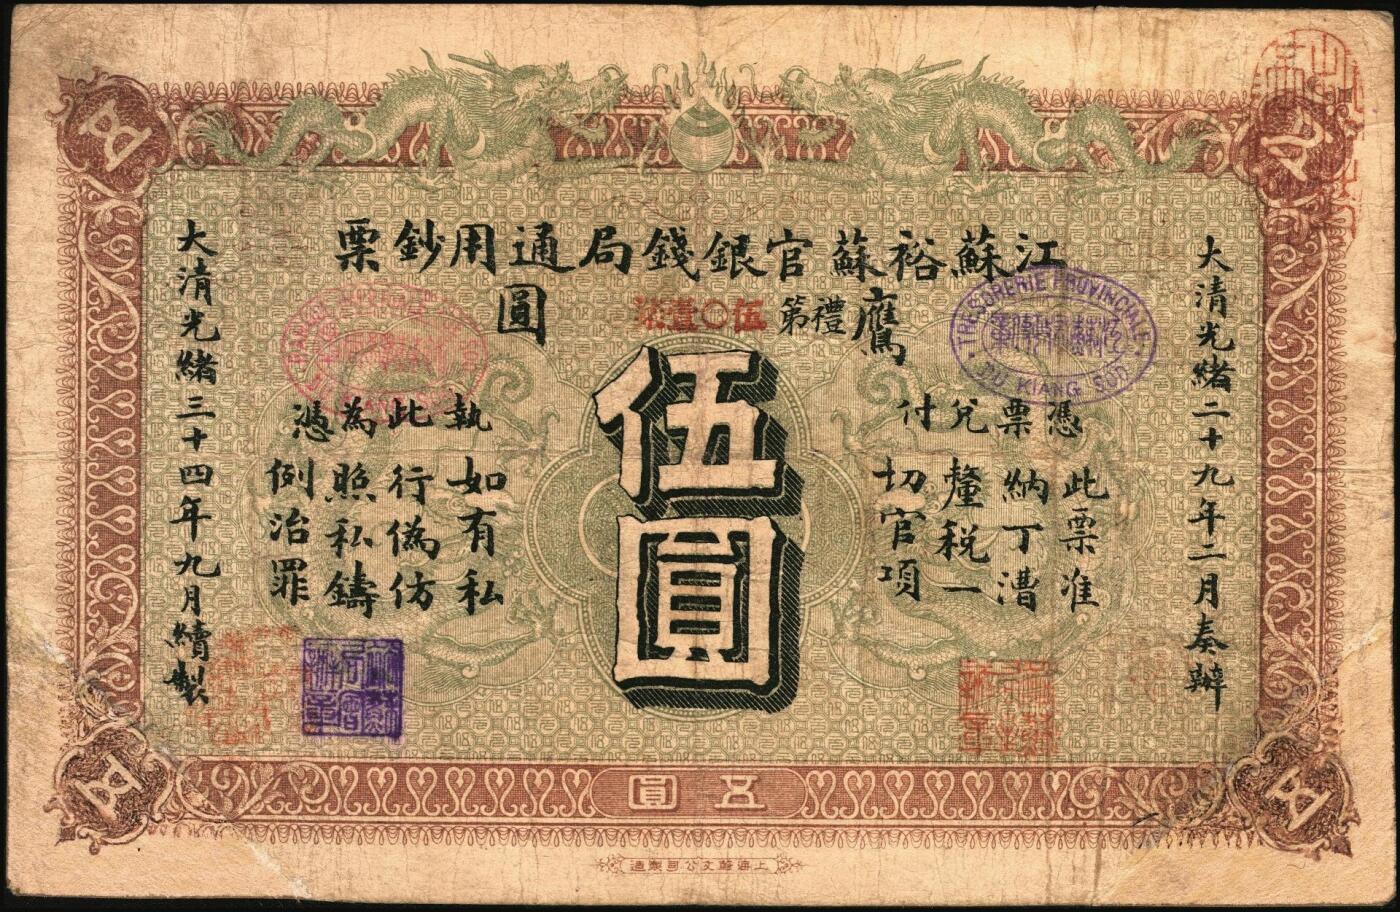 江蘇裕蘇官銀錢局通用鈔票
鷹
圓
禮第
伍〇壹柒
伍圓
憑此票准
票納丁漕
兌釐稅一
付切官項
執如有私
此行偽仿
為照私鑄
憑例治罪
大清光緒二十九年二月奏辦
大清光緒三十四年九月續製
TRESORERIE PROVINCIALE
DU KIANG SOU
五
五
五
五
五圓